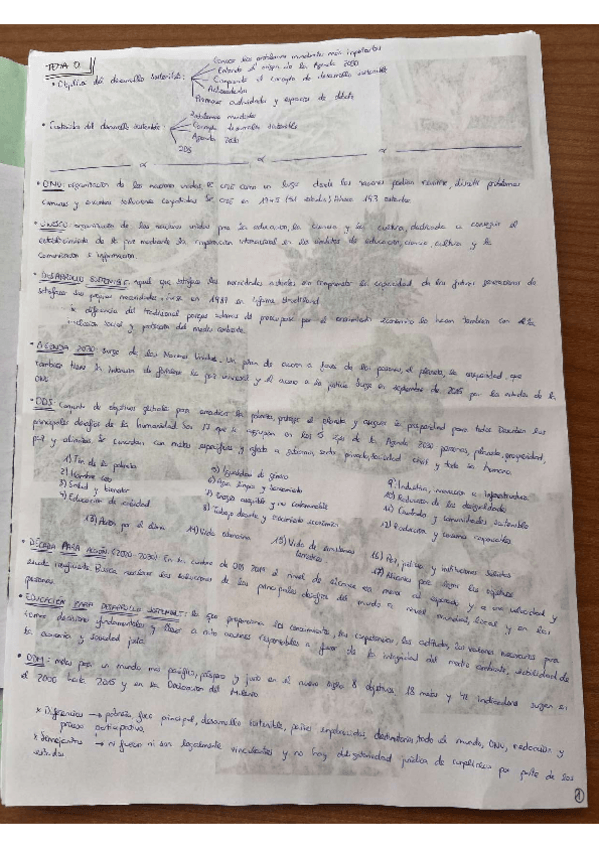 TEMA 0
• Objetivos del desarrollo sostenible: Conocer los problemas mundiales más importantes
Entender el origen de la Agenda 2030
Comprender el concepto de desarrollo sostenible
Promover actividades y espacios de debate
• Contenidos del desarrollo sostenible: Problemas mundiales
Concepto desarrollo sostenible
Agenda 2030
ODS
• ONU: organización de las naciones unidas se creó como un lugar donde las naciones podían reunirse, discutir problemas
comunes y encontrar soluciones Se creó en 1945 (51 estados). Ahora 193 estados
• UNESCO: organización de las naciones unidas para la educación, la ciencia y la cultura, dedicada a conseguir el
establecimiento de la paz mediante la cooperación internacional en los ámbitos de educación, ciencia, cultura y la
comunicación e información.
• DESARROLLO SOSTENIBLE: aquel que satisface las necesidades actuales sin comprometer la capacidad de las futuras generaciones de
satisfacer sus propias necesidades, en 1987 en informe Brundtland
se diferencia del tradicional porque además de preocuparse por el crecimiento económico lo hacen también con la
inclusión social y protección del medio ambiente.
• AGENDA 2030: Surge de las Naciones Unidas. Un plan de acción a favor de las personas, el planeta, la prosperidad, que
también tiene la intención de fortalecer la paz universal y el acceso a la justicia. Surge en septiembre de 2015 por los estados de la
ONU
• ODS: Conjunto de objetivos globales para erradicar la pobreza, proteger el planeta y asegurar la prosperidad para todos. Describen los
principales desafíos de la humanidad. Son 17 que se agrupan en los 5 ejes de la Agenda 2030 personas, planeta, prosperidad,
paz y alianzas. Se concretan con metas específicas y afecta a gobiernos, sector privado, sociedad civil y todo ser humano.
1) Fin de la pobreza
2) Hambre cero
3) Salud y bienestar
4) Educación de calidad
5) Igualdad de género
6) Agua limpia y saneamiento
7) Energía asequible y no contaminante
8) Trabajo decente y crecimiento económico
9) Industria, innovación e infraestructura
10) Reducción de las desigualdades
11) Ciudades y comunidades sostenibles
12) Producción y consumo responsables
13) Acción por el clima
14) Vida submarina
15) Vida de ecosistemas terrestres
16) Paz, justicia e instituciones sólidas
17) Alianzas para lograr los objetivos
• DÉCADA PARA ACCIÓN: (2020-2030): En la cumbre de ODS 2019 el nivel de alcance es menor al esperado y a una velocidad y
escala Busca acelerar las soluciones de los principales desafíos del mundo a nivel mundial, local y en las
personas.
• EDUCACIÓN PARA DESARROLLO SOSTENIBLE: la que proporciona los conocimientos, las competencias, las actitudes, los valores necesarios para
tomar decisiones fundamentadas y llevar a cabo acciones responsables a favor de la integridad del medio ambiente, viabilidad de
la economía y sociedad justa
• ODM: metas para un mundo más pacífico, próspero y justo en el nuevo siglo. 8 objetivos, 18 metas y 48 indicadores surgen en
el 2000 hasta 2015 y en la Declaración del Milenio
x Diferencias → pobreza foco principal, desarrollo sostenible, países implicados, destinatario todo el mundo, ONU, redacción y
proceso participativo.
x Semejantes → ni fueron ni son legalmente vinculantes y no hay obligatoriedad jurídica de cumplirlos por parte de los
estados
1